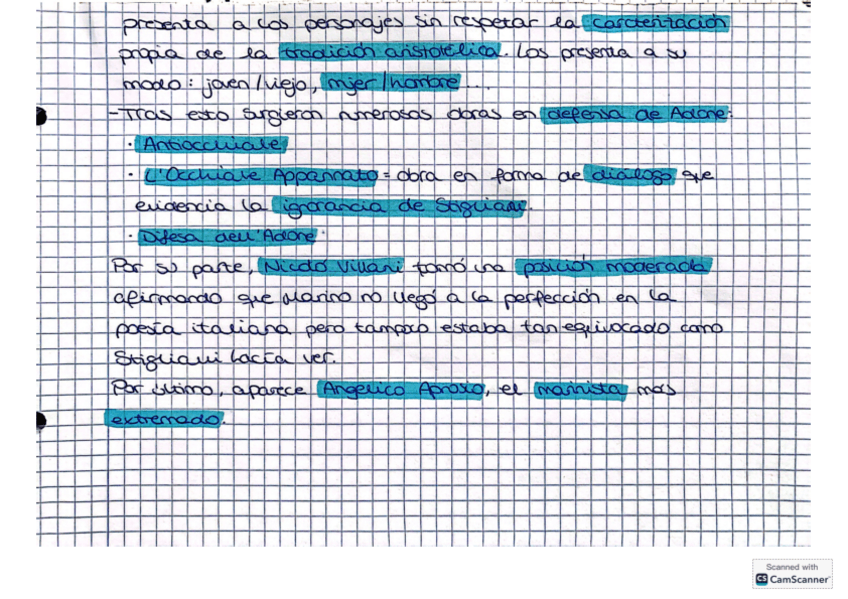 presenta a los personajes sin respetar la caracterización
propia de la tradición aristotélica. Los presenta a su
modo: joven/viejo, mjer/hombre...
-Tras esto surgieron numerosas obras en defensa de Adone:
· Antiocchiale
· L'Occhiale Appannato = obra en forma de diálogo que
evidencia la ignorancia de Stigliani.
· Difesa dell'Adone
Por su parte, Nicoló Villani tomó una posición moderada
afirmando que Marino no llegó a la perfección en la
poesía italiana pero tampoco estaba tan equivocado como
Stigliani hacía ver.
Por último, aparece Angelico Aprosio, el marinista más
extremado.
Scanned with
CS CamScanner